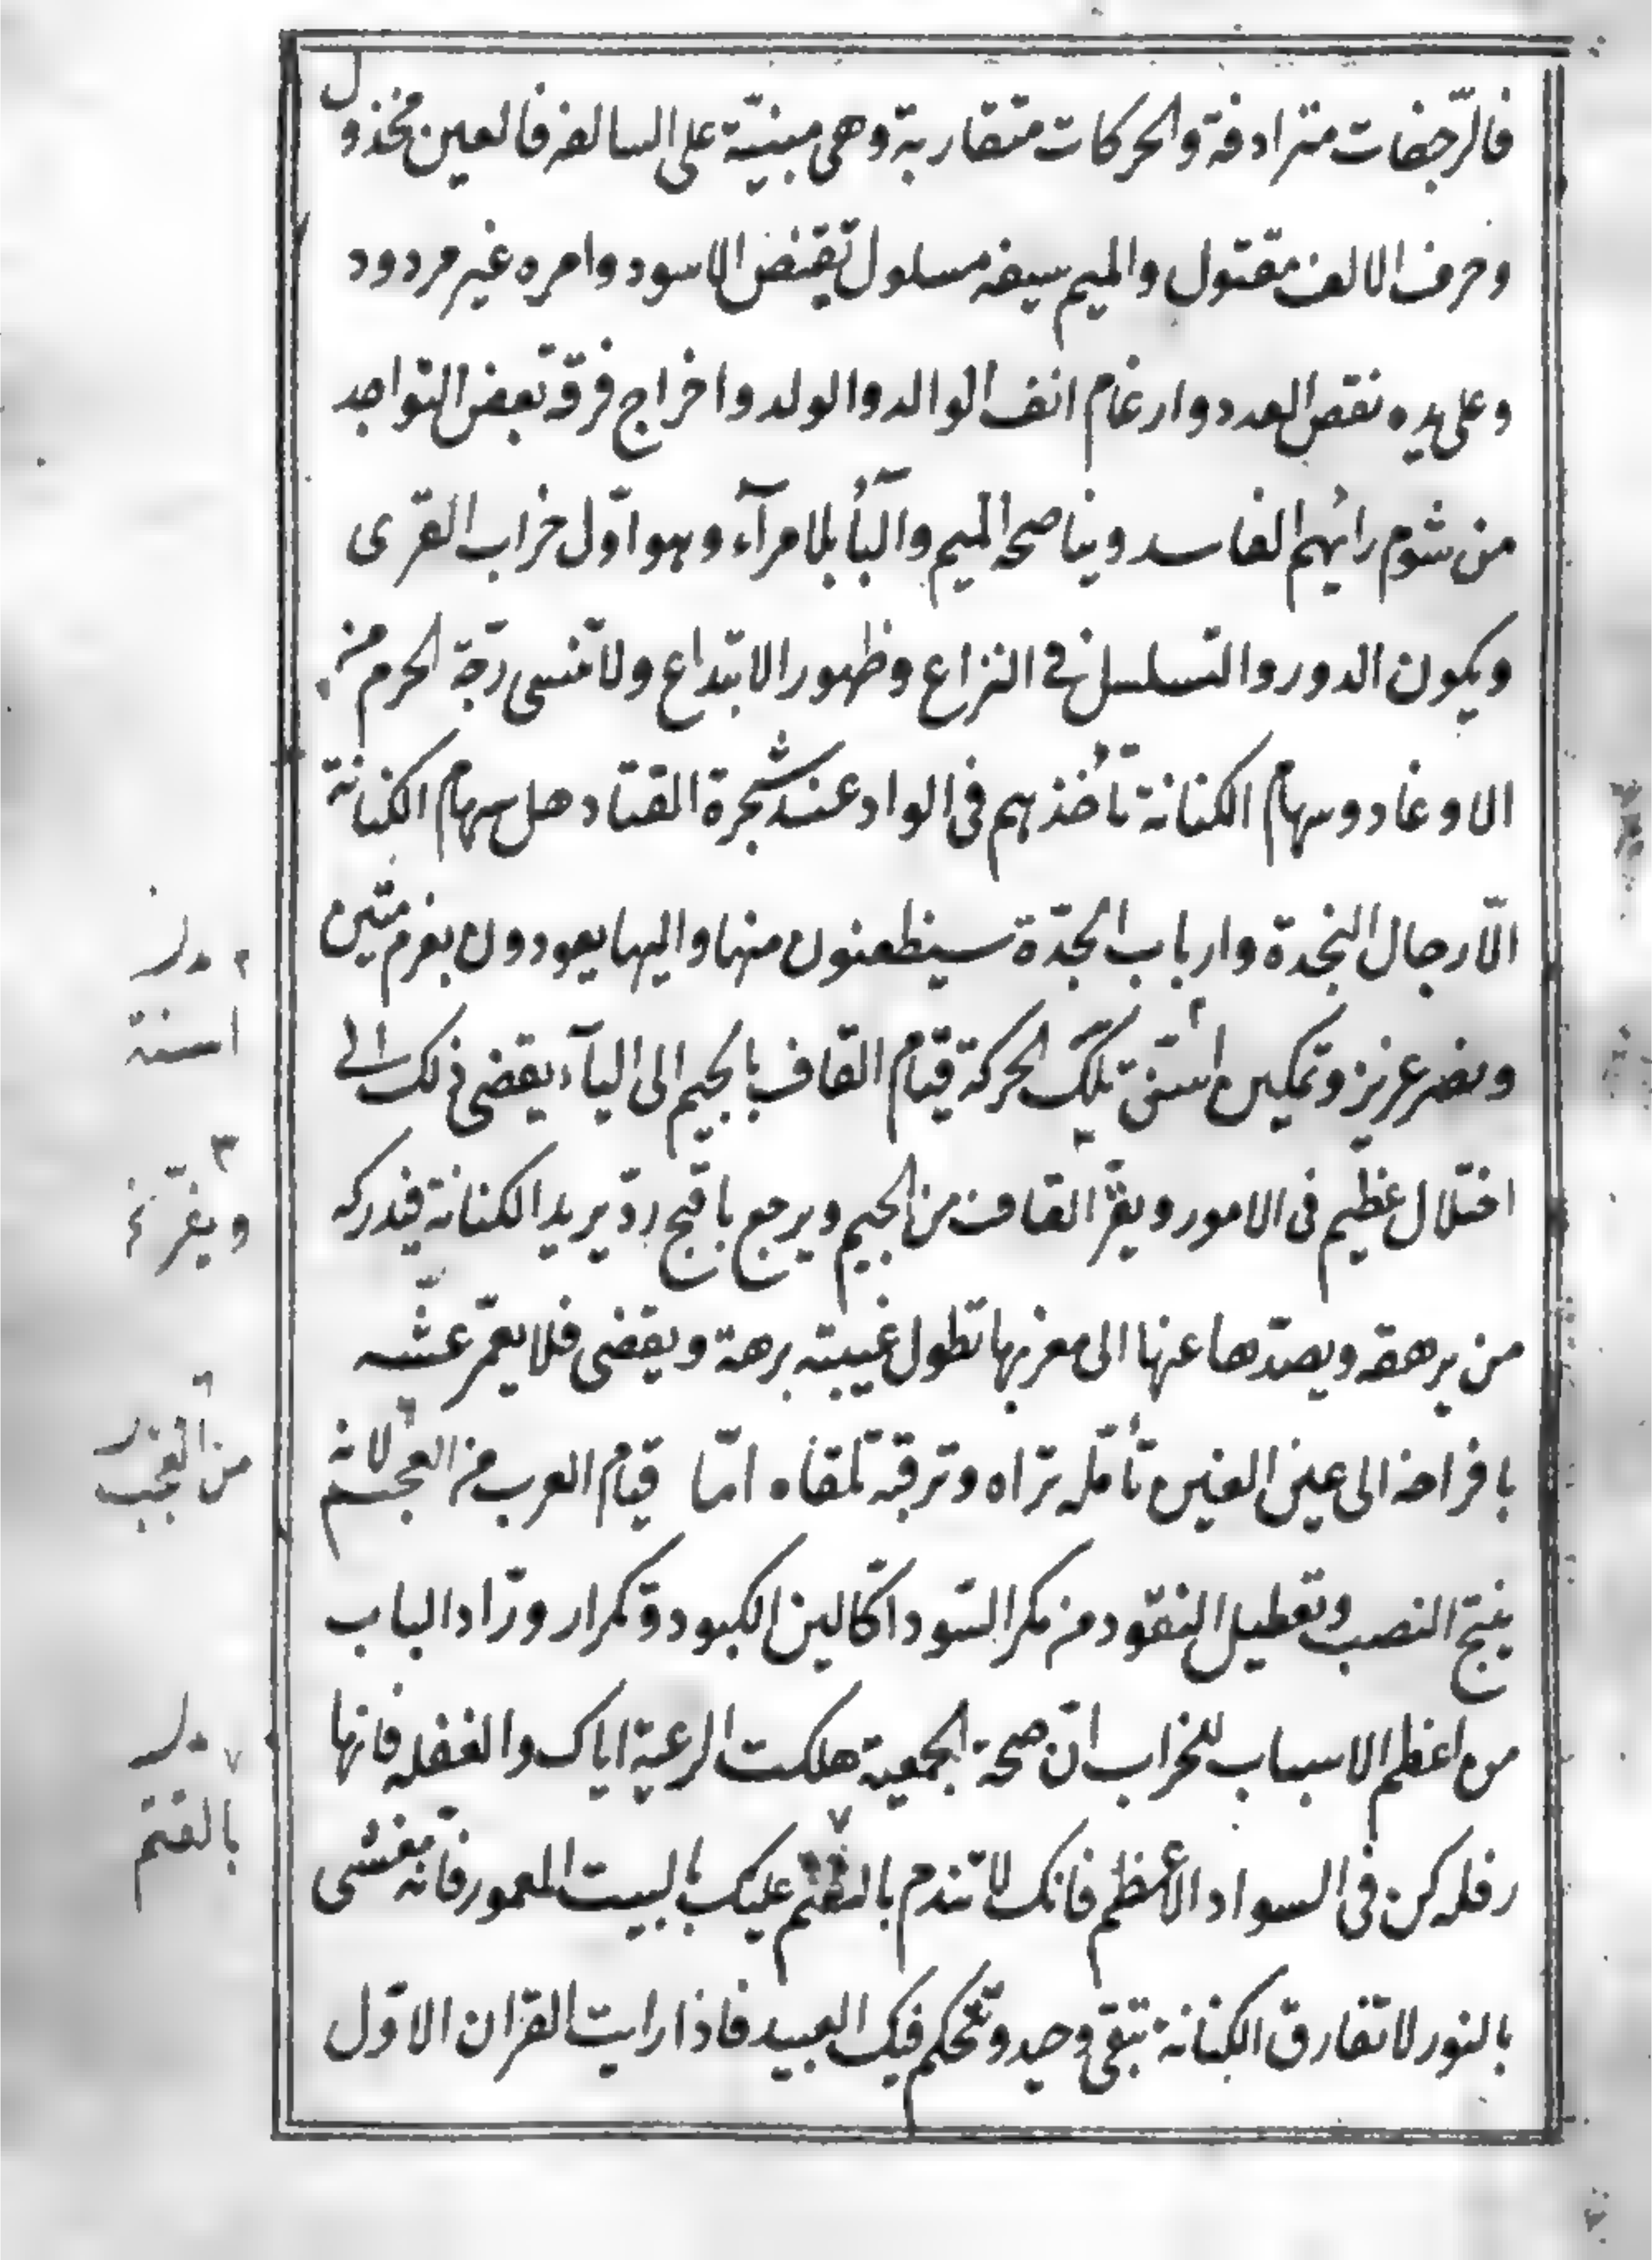 فالرّجفات مترادفة والحركات متقاربة وهى مبنيّة على السالفه فالعين مخذول
وحرف الالف مقتول والميم سيفه مسلول تقبض الاسود وامره غير مردود
وعلى يده نقص العدد وارغام انف الوالد والولد واخراج فرقة بعض التواجد
من شوم رائهم الفاسد ويناصحه الميم والبآء بلا مرآء وهو اوّل خراب القرى
ويكون الدور والتسلسل فى النزاع وظهور الابتداع ولا تنسى رجّة الحرم من
الاوغاد وسهام الكنانة تأخذهم فى الواد عند شجرة القتاد هل سهام الكنانة
الّا رجال النجدة وارباب الجدّة سيظعنون منها واليها يعودون بعزم متين
ونصر عزيز وتمكين استنّ تلك الحركة قيام القاف بالجيم الى اليآء يقضى ذلك الى
اختلال عظيم فى الامور ويفرّ القاف من الجيم ويرجع باقبح ردّ يريد الكنانة فيدركه
من يرهقه ويصدّها عنها الى مغربها تطول غيبته برهة ويقضى فلا يعمّر عشّه
بافراخه الى عين الغين تأمّله تراه وترقّبه تلقاه امّا قيام العرب من العجم لانه
ينتج النصب وتعطيل النقود من مكر السّود اكّالين الكبود وتكرار ورّاد الباب
من اعظم الاسباب للخراب انّ صحة الجمعية هلكت الرعية اياك والغفله فانها
رفله كن فى السواد الاعظم فانك لا تندم بالتغنم عليك بالبيت المعمور فانّه مغشى
بالنور لا تفارق الكنانة تبقى وحيد وتتحكم فيك العبيد فاذا رايت القران الاوّل
٢ بدل
اسنة
٣
ويفرّ نخ
٦
من العجب
٧ بدل
بالقتم